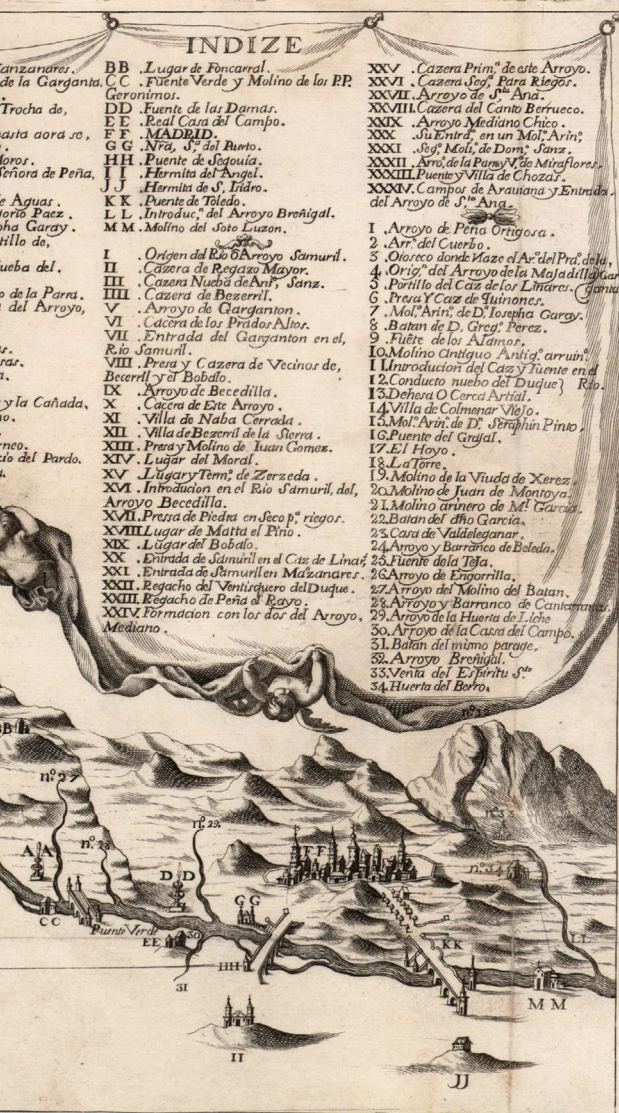 INDIZE
anzanares.
de la Garganta.
Trocha de,
hasta aora se,
Moros.
Señora de Peña,
de Aguas.
torio Paez.
pha Garay.
tillo de,
ueba del.
o de la Parra.
a del Arroyo,
s.
sas.
a.
y la Cañada,
no.
rneo.
cio del Pardo.
BB .Lugar de Foncarral.
CC .Fuente Verde y Molino de los P.P.
Geronimos.
DD .Fuente de las Damas.
EE .Real Casa del Campo.
FF .MADRID.
GG .Nrã, Sª. del Puerto.
HH .Puente de Segouia.
II .Hermita del Angel.
JJ .Hermita de S. Isidro.
KK .Puente de Toledo.
LL .Introducº. del Arroyo Breñigal.
MM .Molino del Soto Luzon.
I .Origen del Rio ó Arroyo Samuril.
II .Cazera de Regazo Mayor.
III .Cazera Nueba de Antº, Sanz.
IIII .Cazera de Bezerril.
V .Arroyo de Garganton.
VI .Cacera de los Prados Altos.
VII .Entrada del Garganton en el,
Rio Samuril.
VIII .Presa y Cazera de Vecinos de,
Becerril y el Bobalo.
IX .Arroyo de Becedilla.
X .Cacera de Este Arroyo.
XI .Villa de Naba Cerrada.
XII .Villa de Bezerril de la Sierra.
XIII .Presa y Molino de Iuan Gomez.
XIV .Lugar del Moral.
XV .Lugar y Termº. de Zerzeda.
XVI .Introducion en el Rio Samuril, del,
Arroyo Becedilla.
XVII .Pressa de Piedra en Seco pª. riegos.
XVIII Lugar de Matta el Pino.
XIX .Lugar del Bobalo.
XX .Entrada de Samuril en el Caz de Linar,
XXI .Entrada de Samuril en Mãzanares.
XXII .Regacho del Ventisquero del Duque.
XXIII .Regacho de Peña el Rayo.
XXIV .Formacion con los dos del Arroyo,
Mediano.
XXV .Cazera Primª. de este Arroyo.
XXVI .Cazera Segª. Para Riegos.
XXVII .Arroyo de Sᵗᵃ Ana.
XXVIII .Cazera del Canto Berrueco.
XXIX .Arroyo Mediano Chico.
XXX .Su Entrª. en un Molº. Arinº,
XXXI .Segº. Moliº. de Domº, Sanz.
XXXII .Arroº. de la Param y Vª. de Miraflores.
XXXIII .Puente y Villa de Chozas.
XXXIV .Campos de Arauiana y Entrada,
del Arroyo de S.ᵗᵃ Ana.
1 .Arroyo de Peña Ortigosa.
2 .Arrº. del Cuerbo.
3 .Oioseco donde Naze el Arº. del Prdº. de la,
4 .Origº. del Arroyo de la Majadilla Gar
5 .Portillo del Caz de los Linares. ganta
6 .Presa Y Caz de Quinones.
7 .Molº. Arinº. de Dª. Iosepha Garay.
8 .Batan de D. Gregº. Perez.
9 .Fuẽte de los Alamos.
10. Molino Antiguo Antigº. arruinº.
11. Introducion del Caz y Fuente en el
12. Conducto nuebo del Duque} Rio.
13. Dehesa O Cerca Artial.
14. Villa de Colmenar Viejo.
15. Molº. Arinº. de Dº. Seraphin Pinto.
16. Puente del Grajal.
17. El Hoyo.
18. La Torre.
19. Molino de la Viuda de Xerez.
20. Molino de Juan de Montoya.
21. Molino arinero de Mˡ. Garcia.
22. Batan del dño Garcia.
23. Casa de Valdeleganar.
24. Arroyo y Barranco de Beleda.
25. Fuente de la Teja.
26. Arroyo de Engorrilla.
27. Arroyo del Molino del Batan.
28. Arroyo y Barranco de Cantarranas.
29. Arroyo de la Huerta de Liche
30. Arroyo de la Cassa del Campo.
31. Batan del mismo parage.
32. Arroyo Breñigal.
33. Venta del Espiritu S.ᵗᵒ
34. Huerta del Berro.
BB
nº. 27
nº. 28.
nº. 29.
FF
nº. 33
nº. 34
AA
DD
GG
CC
Puente Verde
EE
30
HH
KK
LL
31
MM
II
JJ